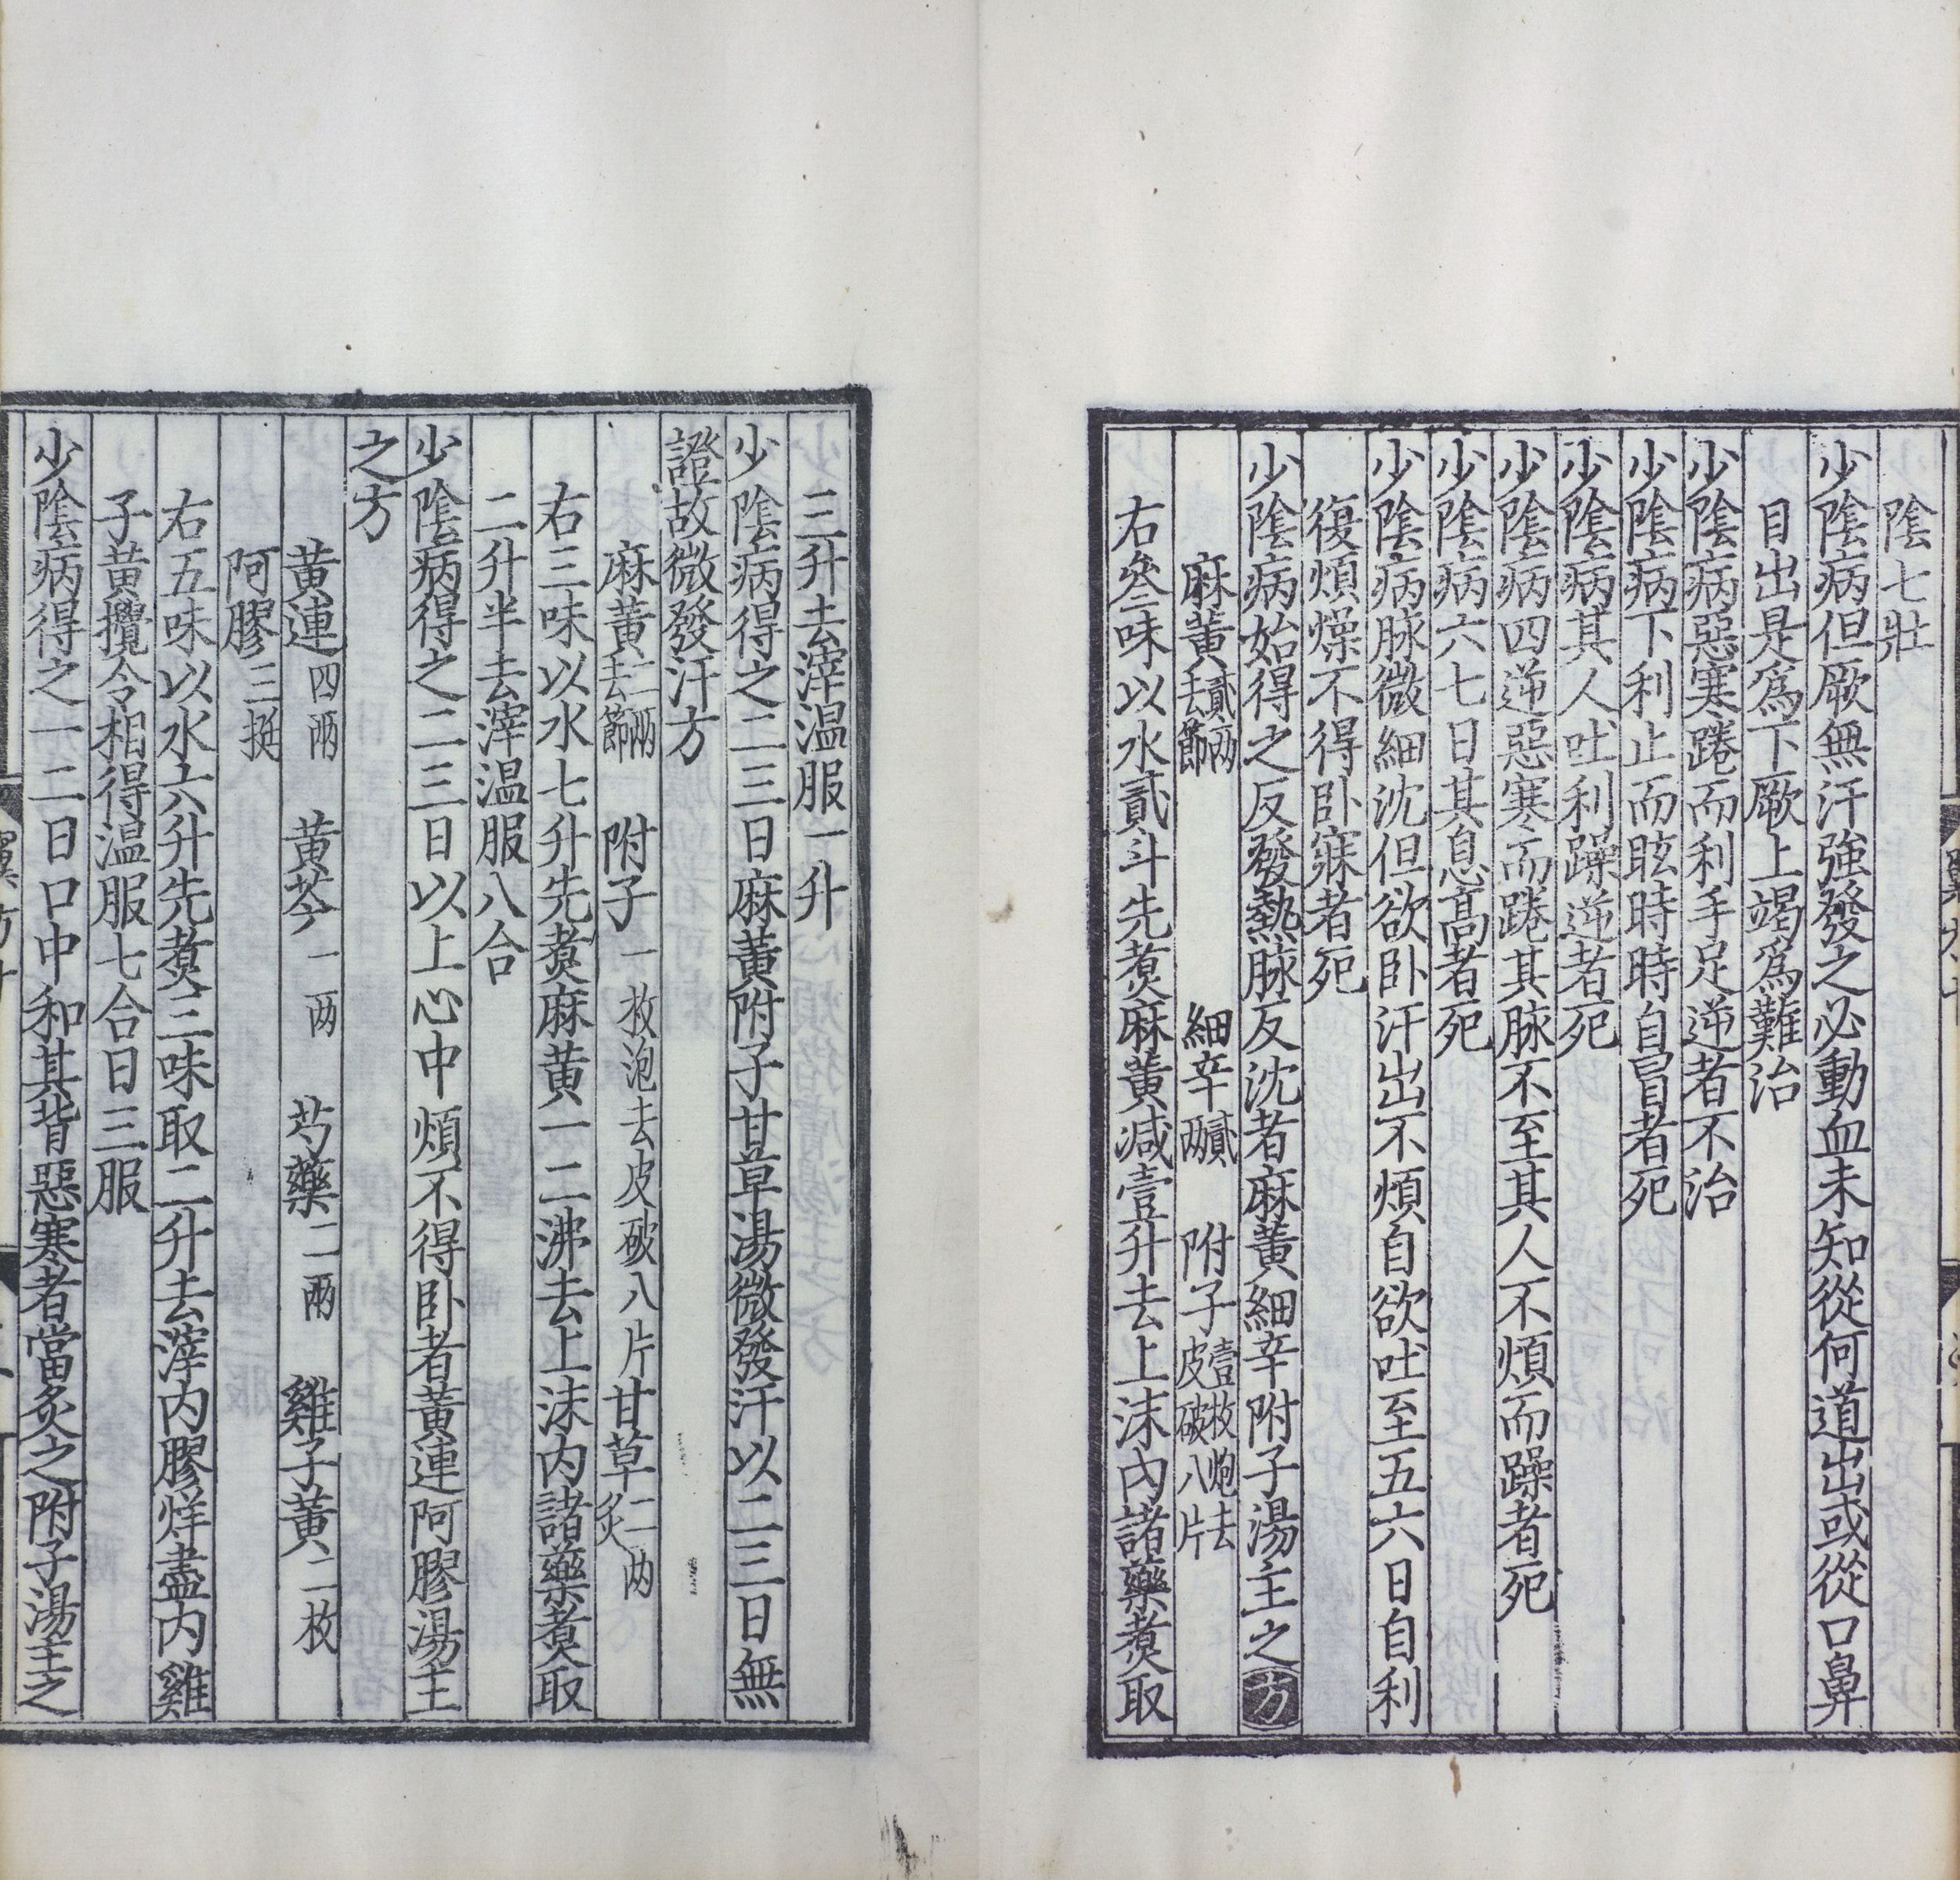 陰七壯
少陰病但厥無汗強發之必動血未知從何道出或從口鼻
目出是爲下厥上竭爲難治
少陰病惡寒踡而利手足逆者不治
少陰病下利止而眩時時自冒者死
少陰病其人吐利躁逆者死
少陰病四逆惡寒而踡其脉不至其人不煩而躁者死
少陰病六七日其息高者死
少陰病脉微細沈但欲卧汗出不煩自欲吐至五六日自利
復煩燥不得卧寐者死
少陰病始得之反發熱脉反沈者麻黃細辛附子湯主之方
麻黃貳兩去節 細辛貳兩 附子壹枚炮去皮破八片
右叁味以水貳斗先煮麻黃減壹升去上沫內諸藥煮取
三升去滓温服一升
少陰病得之二三日麻黃附子甘草湯微發汗以二三日無
證故微發汗方
麻黃二兩去節 附子一枚泡去皮破八片 甘草二两炙
右三味以水七升先煮麻黃一二沸去上沫内諸藥煮取
二升半去滓温服八合
少陰病得之二三日以上心中煩不得卧者黃連阿膠湯主
之方
黃連四兩 黃芩一两 芍藥二兩 雞子黃二枚
阿膠三挺
右五味以水六升先煮三味取二升去滓内膠烊盡内雞
子黃攪令相得温服七合日三服
少陰病得之一二日口中和其背惡寒者當灸之附子湯主之